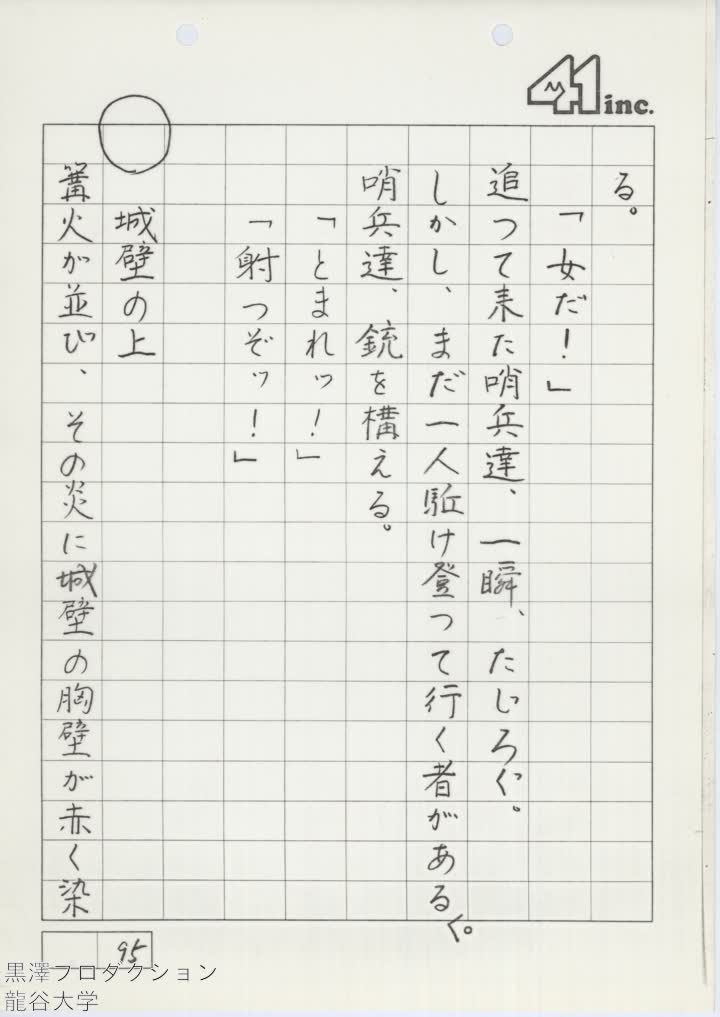 41 inc.
る。
「女だ!」
追つて来た哨兵達、一瞬、たじろぐ。
しかし、まだ一人駈け登つて行く者がある。
哨兵達、銃を構える。
「とまれッ!」
「射つぞッ!」
城壁の上
篝火が並び、その炎に城壁の胸壁が赤く染
95
黒澤プロダクション
龍谷大学